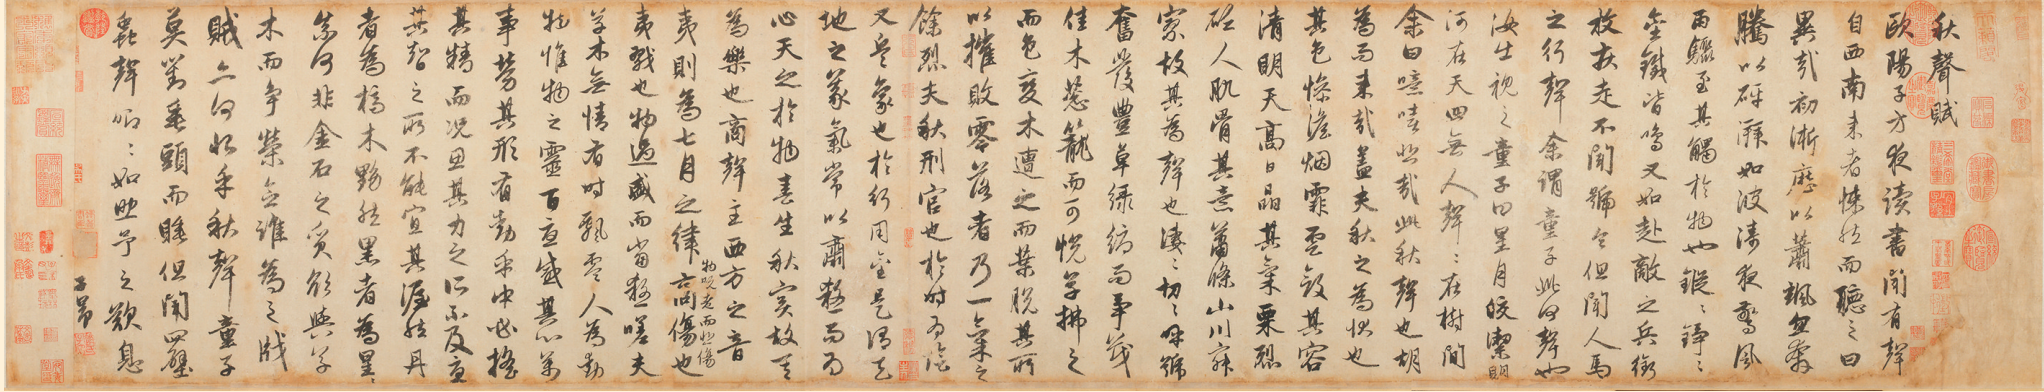 秋聲賦
歐陽子方夜讀書聞有聲
自西南來者悚然而聽之曰
異哉初淅瀝以蕭颯忽奔
騰以砰湃如波濤夜驚風
雨驟至其觸於物也鏦〻錚〻
金鐵皆鳴又如赴敵之兵銜
枚疾走不聞號令但聞人馬
之行聲余謂童子此何聲也
汝出視之童子曰星月皎潔明
河在天四無人聲〻在樹間
余曰噫嘻悲哉此秋聲也胡
為而來哉蓋夫秋之為狀也
其色慘澹烟霏雲斂其容
清明天高日晶其氣栗烈
砭人肌骨其意蕭條山川寂
寥故其為聲也淒〻切〻呼號
奮發豐草綠縟而爭茂
佳木蔥蘢而可悅草拂之
而色變木遭之而葉脫其所
以摧敗零落者乃一氣之
餘烈夫秋刑官也於時為陰
又兵象也於行用金是謂天
地之義氣常以肅殺而為
心天之於物春生秋實故其
為樂也商聲主西方之音
夷則為七月之律商傷也
物既老而悲傷
夷戮也物過盛而當殺嗟夫
草木無情有時飄零人為動
物惟物之靈百憂感其心萬
事勞其形有動乎中必搖
其精而況思其力之所不及憂
其智之所不能宜其渥然丹
者為槁木黟然黑者為星〻
奈何非金石之質欲與草
木而爭榮念誰為之戕
賊亦何恨乎秋聲童子
莫對垂頭而睡但聞四壁
蟲聲唧〻如助予之歎息
子昂